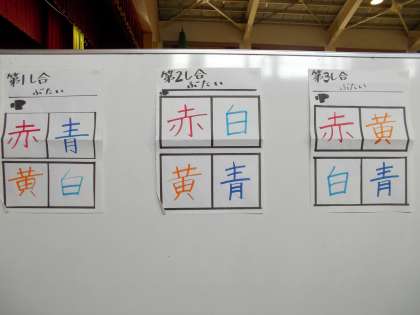 第1し合
ぶたい
赤 青
黄 白
第2し合
ぶたい
赤 白
黄 青
第3し合
ぶたい
赤 黄
白 青